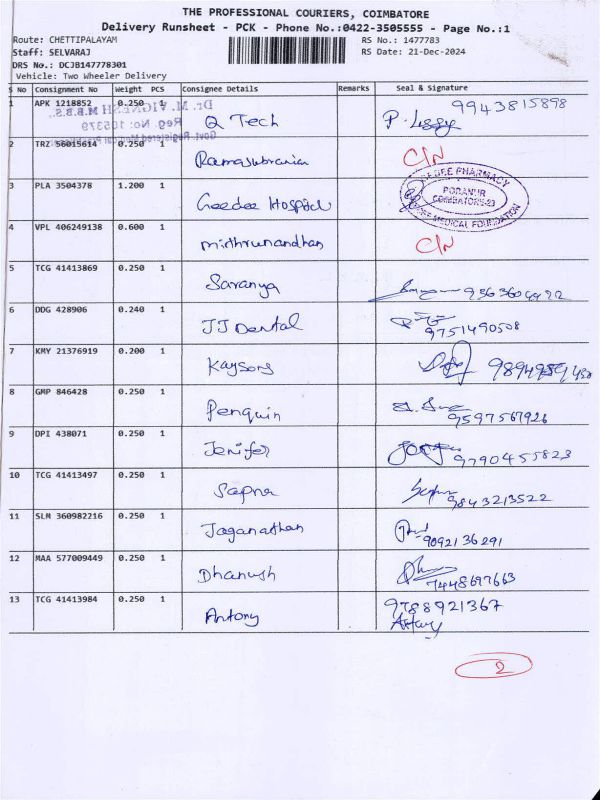 THE PROFESSIONAL COURIERS, COIMBATORE
Delivery Runsheet - PCK - Phone No.:0422-3505555 - Page No.:1
Route: CHETTIPALAYAM RS No.: 1477783
Staff: SELVARAJ RS Date: 21-Dec-2024
DRS No.: DCJB147778301
Vehicle: Two Wheeler Delivery
S No Consignment No Weight PCS Consignee Details Remarks Seal & Signature
1 APK 1218852 0.250 1 Q Tech P. Lissy 9943815898
Dr. M. VIGNESH M.B.B.S.,
Reg. No: 105379
2 TRZ 56015614 0.250 1 Ramasubramanian C/N
3 PLA 3504378 1.200 1 Geedee Hospital
GEDEE PHARMACY
PODANUR
COIMBATORE-23
MEDICAL FOUNDATION
4 VPL 406249138 0.600 1 mirthrunandhan C/N
5 TCG 41413869 0.250 1 Saranya
6 DDG 428906 0.240 1 JJ Dental 9751490508
7 KMY 21376919 0.200 1 Kaysons
8 GMP 846428 0.250 1 Penguin 9597567926
9 DPI 438071 0.250 1 Jenifer 9790455823
10 TCG 41413497 0.250 1 Sapna 9843213522
11 SLM 360982216 0.250 1 Jaganathan 9092136291
12 MAA 577009449 0.250 1 Dhanush 7448697663
13 TCG 41413984 0.250 1 Antony 9788921367
Antony
2